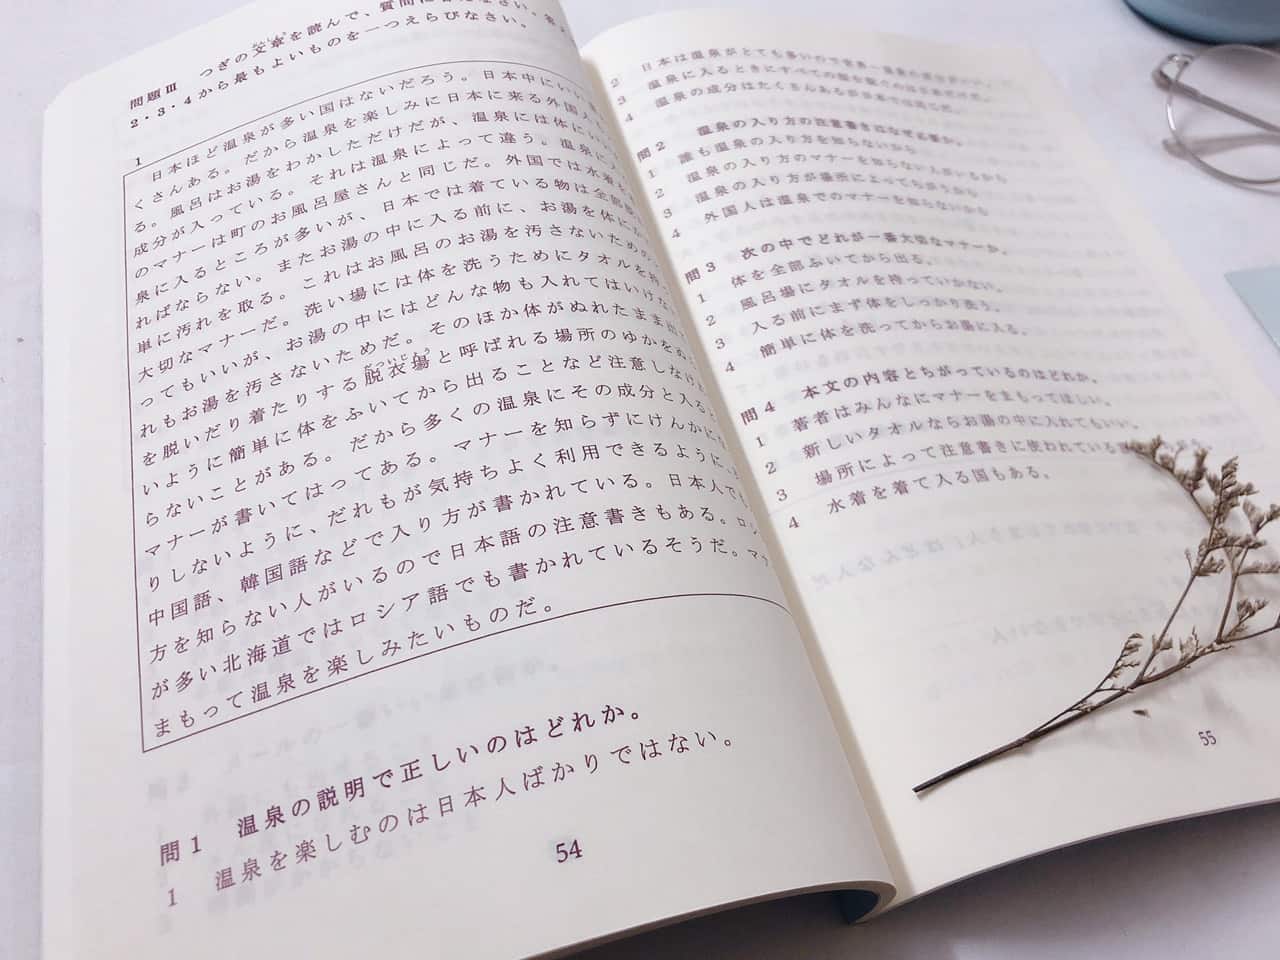 問題Ⅲ つぎの文章を読んで、質問に答えなさい。答え
2・3・4から最もよいものを一つえらびなさい。
1
日本ほど温泉が多い国はないだろう。日本中にいい
くさんある。だから温泉を楽しみに日本に来る外国人
る。風呂はお湯をわかしただけだが、温泉には体にい
成分が入っている。それは温泉によって違う。温泉に入
のマナーは町のお風呂屋さんと同じだ。外国では水着を
泉に入るところが多いが、日本では着ている物は全部
ればならない。またお湯の中に入る前に、お湯を体にか
単に汚れを取る。これはお風呂のお湯を汚さないための
大切なマナーだ。洗い場には体を洗うためにタオルを持
ってもいいが、お湯の中にはどんな物も入れてはいけな
れもお湯を汚さないためだ。そのほか体がぬれたまま
を脱いだり着たりする脱衣場と呼ばれる場所のゆかをぬ
いように簡単に体をふいてから出ることなど注意しなけ
らないことがある。だから多くの温泉にその成分と入る
マナーが書いてはってある。マナーを知らずにけんかに
りしないように、だれもが気持ちよく利用できるように、
中国語、韓国語などで入り方が書かれている。日本人でも
方を知らない人がいるので日本語の注意書きもある。ロシ
が多い北海道ではロシア語でも書かれているそうだ。マナ
まもって温泉を楽しみたいものだ。
問1 温泉の説明で正しいのはどれか。
1 温泉を楽しむのは日本人ばかりではない。
54
2 日本は温泉がとても多いので世界一
3 温泉に入るときにすべての服を脱ぐのは日本だけだ。
4 温泉の成分はたくさんあるが日本では同じだ。
問2 温泉の入り方の注意書きはなぜ必要か。
1 誰も温泉の入り方を知らないから
2 温泉の入り方のマナーを知らない人がいるから
3 温泉の入り方が場所によってちがうから
4 外国人は温泉でのマナーを知らないから
問3 次の中でどれが一番大切なマナーか。
1 体を全部ふいてから出る。
2 風呂場にタオルを持っていかない。
3 入る前にまず体をしっかり洗う。
4 簡単に体を洗ってからお湯に入る。
問4 本文の内容とちがっているのはどれか。
1 著者はみんなにマナーをまもってほしい。
2 新しいタオルならお湯の中に入れてもいい。
3 場所によって注意書きに使われている
4 水着を着て入る国もある。
55